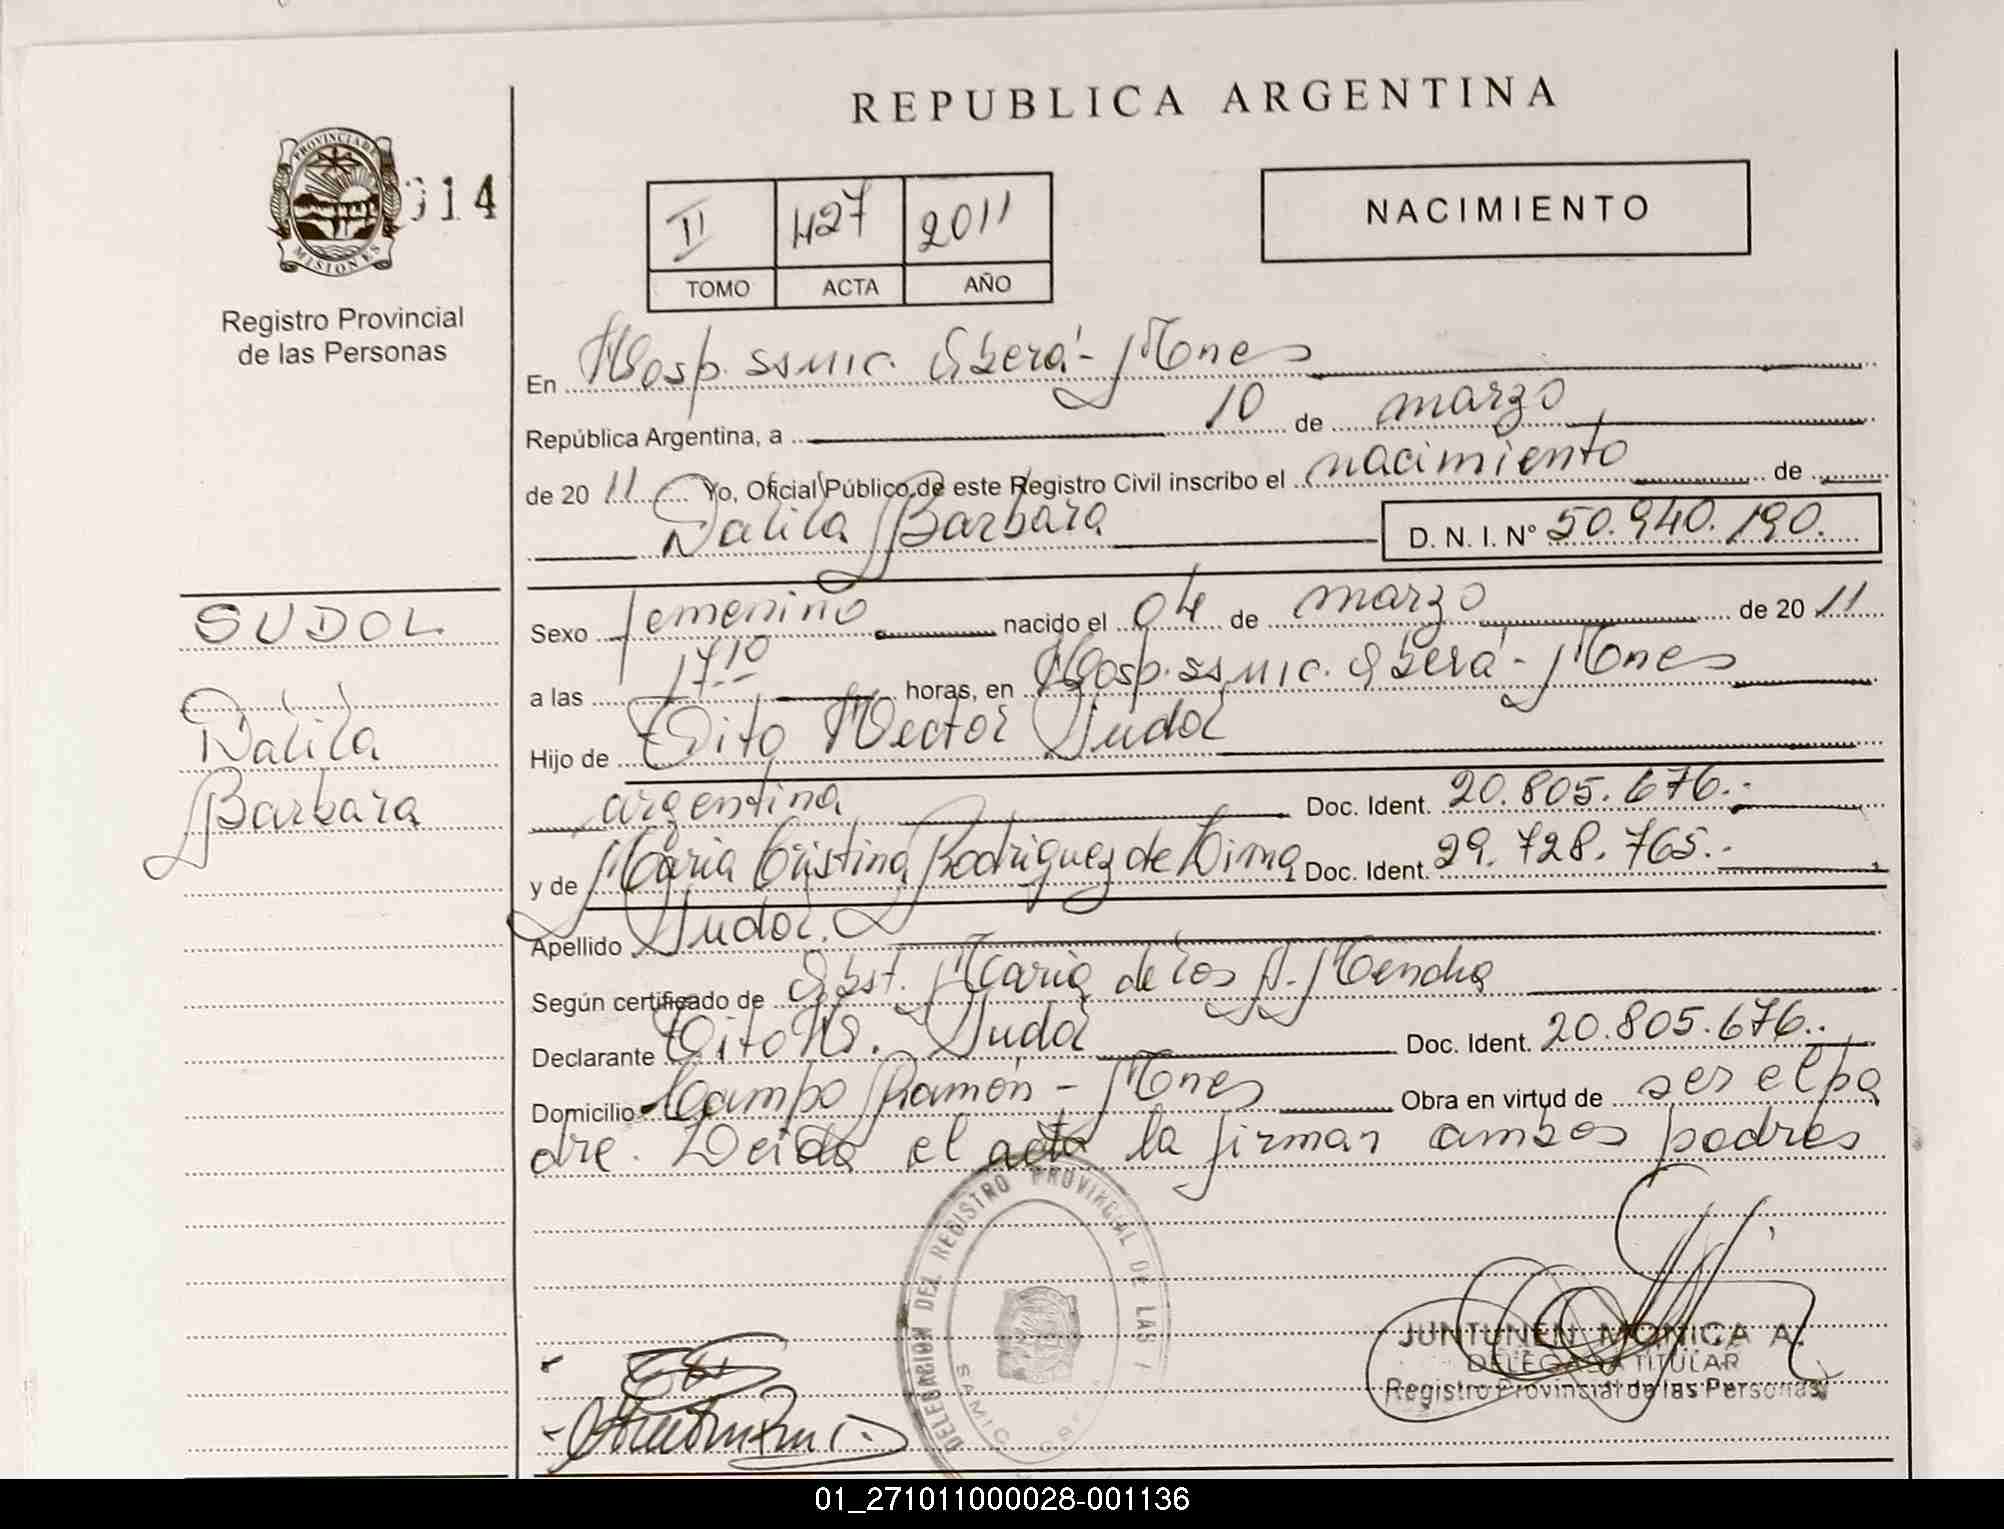 REPUBLICA ARGENTINA
PROVINCIA DE
MISIONES
014
Registro Provincial
de las Personas
II 427 2011
TOMO ACTA AÑO
NACIMIENTO
En Hosp. SSMIC. Oberá - Mones
República Argentina, a 10 de marzo
de 2011 Yo, Oficial Público de este Registro Civil inscribo el nacimiento de
Dalila Barbara D. N. I. Nº 50.940.190.
SUDOL
Dalila
Barbara
Sexo femenino nacido el 04 de marzo de 2011
a las 17.10 horas, en Hosp. SSMIC. Oberá - Mones
Hijo de Tito Hector Sudol
argentina Doc. Ident. 20.805.676.-
y de Maria Cristina Rodriguez de Lima Doc. Ident. 29.728.765.-
Apellido Sudol.
Según certificado de Obst. Maria de los A.
Declarante Tito H. Sudol Doc. Ident. 20.805.676.-
Domicilio Campo Ramón - Mones Obra en virtud de ser el pa
dre. Leida el acta la firman ambos padres
DELEGACION DEL REGISTRO PROVINCIAL DE LAS
JUNTUNEN MONICA A.
DELEGADA TITULAR
Registro Provincial de las Personas
01_271011000028-001136